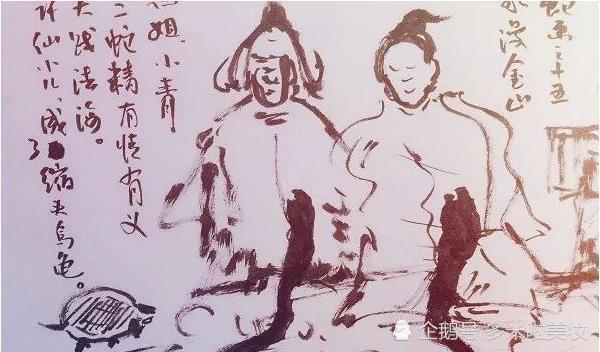 蛇画之十五
水漫金山
姐、小青
二蛇精有情有义
大战法海。
许仙小儿、成了缩头乌龟。
企鹅号 美妆